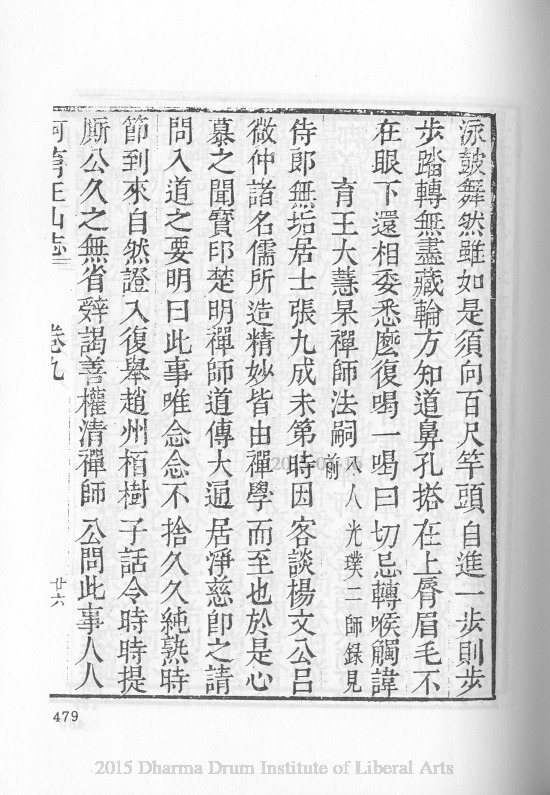 泳鼓舞然雖如是須向百尺竿頭自進一步則步
步踏轉無盡藏輪方知道鼻孔搭在上脣眉毛不
在眼下還相委悉麼復喝一喝曰切忌轉喉觸諱
育王大慧杲禪師法嗣 八人光璞二師錄見前
侍郎無垢居士張九成未第時因客談楊文公呂
微仲諸名儒所造精妙皆由禪學而至也於是心
慕之聞寶印楚明禪師道傳大通居淨慈卽之請
問入道之要明曰此事唯念念不捨久久純熟時
節到來自然證入復舉趙州栢樹子話令時時提
撕公久之無省辤謁善權清禪師公問此事人人
阿育王山志 卷九 廿六
479
2015 Dharma Drum Institute of Liberal Arts